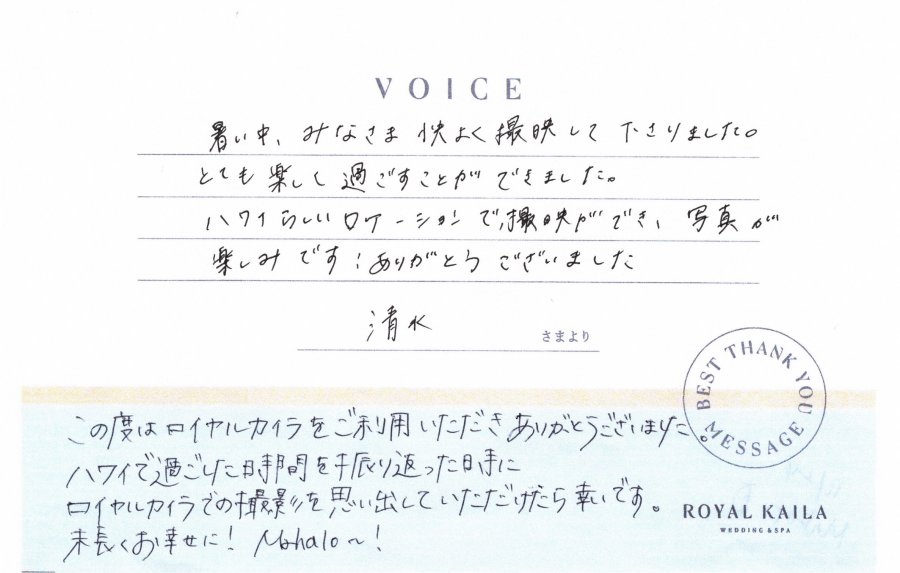 VOICE
暑い中、みなさま快よく撮映して下さりました。
とても楽しく過ごすことができました。
ハワイらしいロケーションで撮映ができ、写真が
楽しみです！ありがとうございました
清水 さまより
BEST THANK YOU MESSAGE
この度はロイヤルカイラをご利用いただきありがとうございました。
ハワイで過ごした時間を振り返った時に
ロイヤルカイラでの撮影を思い出していただけたら幸いです。
末長くお幸せに！ Mahalo〜！
ROYAL KAILA
WEDDING & SPA